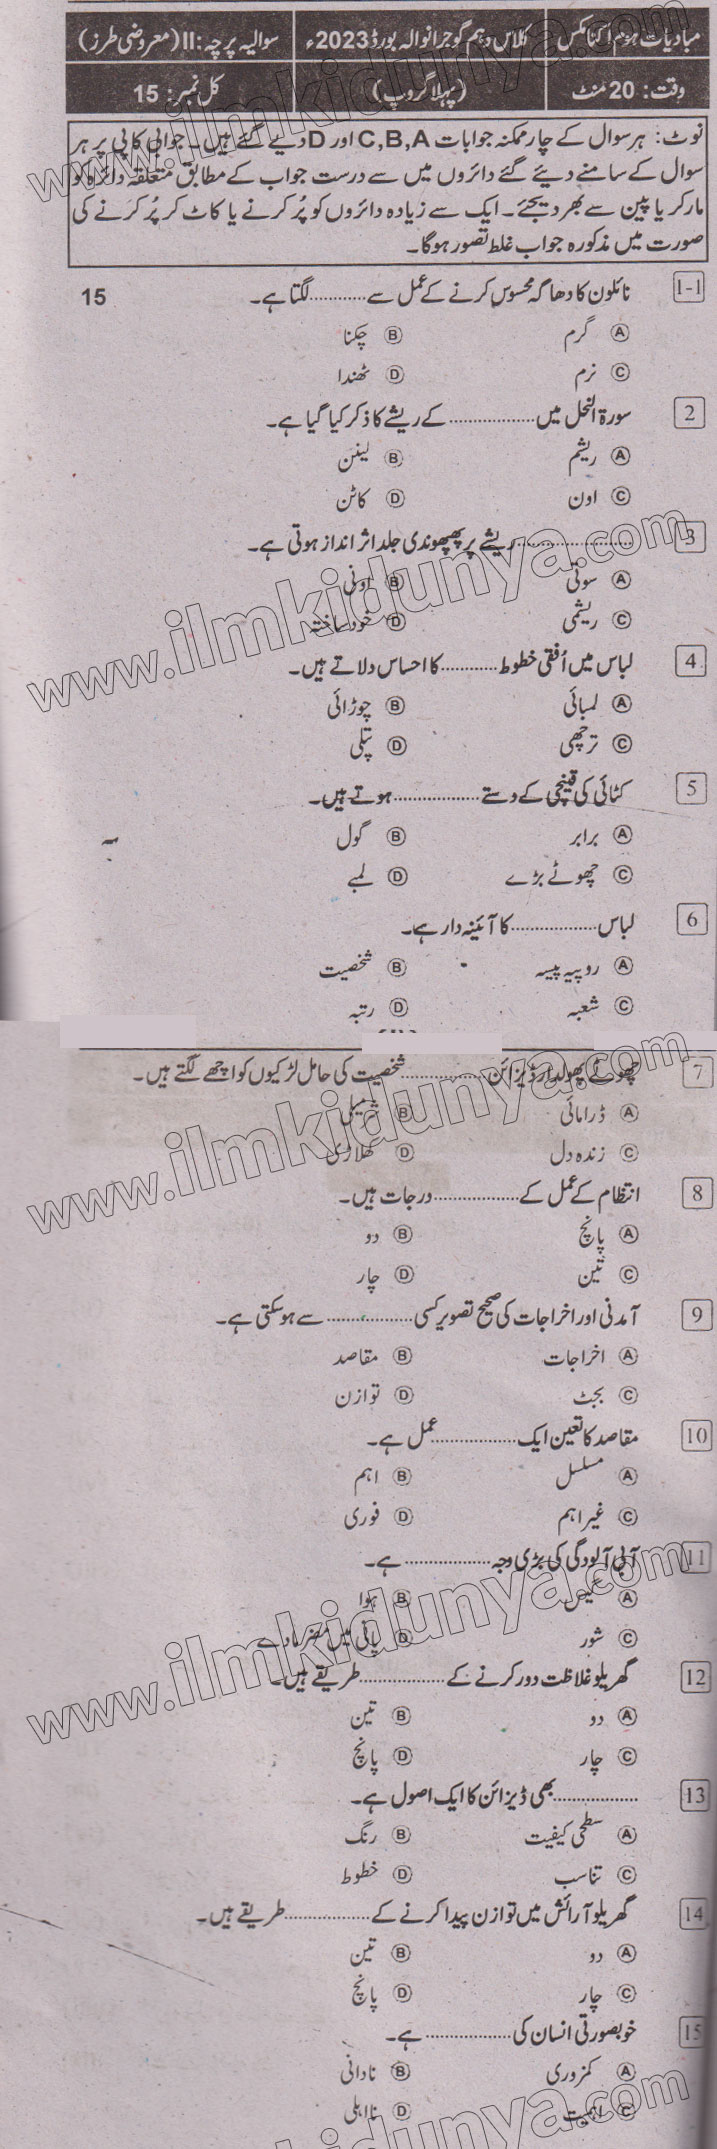 مبادیات ہوم اکنامکس
کلاس دہم گوجرانوالہ بورڈ 2023ء
سوالیہ پرچہ: II (معروضی طرز)
وقت: 20 منٹ
(پہلا گروپ)
کل نمبر: 15
نوٹ: ہر سوال کے چار ممکنہ جوابات C,B,A اور D دیے گئے ہیں۔ جوابی کاپی پر ہر
سوال کے سامنے دیئے گئے دائروں میں سے درست جواب کے مطابق متعلقہ دائرہ کو
مارکر یا پین سے بھر دیجئے۔ ایک سے زیادہ دائروں کو پُر کرنے یا کاٹ کر پُر کرنے کی
صورت میں مذکورہ جواب غلط تصور ہوگا۔
1-1 نائلون کا دھاگہ محسوس کرنے کے عمل سے ........... لگتا ہے۔ 15
A گرم B چکنا
C نرم D ٹھنڈا
2 سورۃ النحل میں ................ کے ریشے کا ذکر کیا گیا ہے۔
A ریشم B لینن
C اون D کاٹن
3 ...................... ریشے پر پھپھوندی جلد اثر انداز ہوتی ہے۔
A سوتی B اونی
C ریشمی D خود ساختہ
4 لباس میں اُفقی خطوط ........... کا احساس دلاتے ہیں۔
A لمبائی B چوڑائی
C ترچھی D پتلی
5 کٹائی کی قینچی کے دستے ................ ہوتے ہیں۔
A برابر B گول
C چھوٹے بڑے D لمبے
6 لباس ................ کا آئینہ دار ہے۔
A روپیہ پیسہ B شخصیت
C شعبہ D رتبہ
7 چھوٹے پھولدار ڈیزائن ................ شخصیت کی حامل لڑکیوں کو اچھے لگتے ہیں۔
A ڈرامائی B شرمیلی
C زندہ دل D کھلاڑی
8 انتظام کے عمل کے ................ درجات ہیں۔
A پانچ B دو
C تین D چار
9 آمدنی اور اخراجات کی صحیح تصویر کسی ................ سے ہوسکتی ہے۔
A اخراجات B مقاصد
C بجٹ D توازن
10 مقاصد کا تعین ایک ................ عمل ہے۔
A مسلسل B اہم
C غیر اہم D فوری
11 آبی آلودگی کی بڑی وجہ ................ ہے۔
A گیس B ہوا
C شور D پانی میں مضر مادے
12 گھریلو غلاظت دور کرنے کے ................ طریقے ہیں۔
A دو B تین
C چار D پانچ
13 ................ بھی ڈیزائن کا ایک اصول ہے۔
A سطحی کیفیت B رنگ
C تناسب D خطوط
14 گھریلو آرائش میں توازن پیدا کرنے کے ................ طریقے ہیں۔
A دو B تین
C چار D پانچ
15 خوبصورتی انسان کی ................ ہے۔
A کمزوری B نادانی
C اہمیت D نااہلی
www.ilmkidunya.com
www.ilmkidunya.com
www.ilmkidunya.com
www.ilmkidunya.com